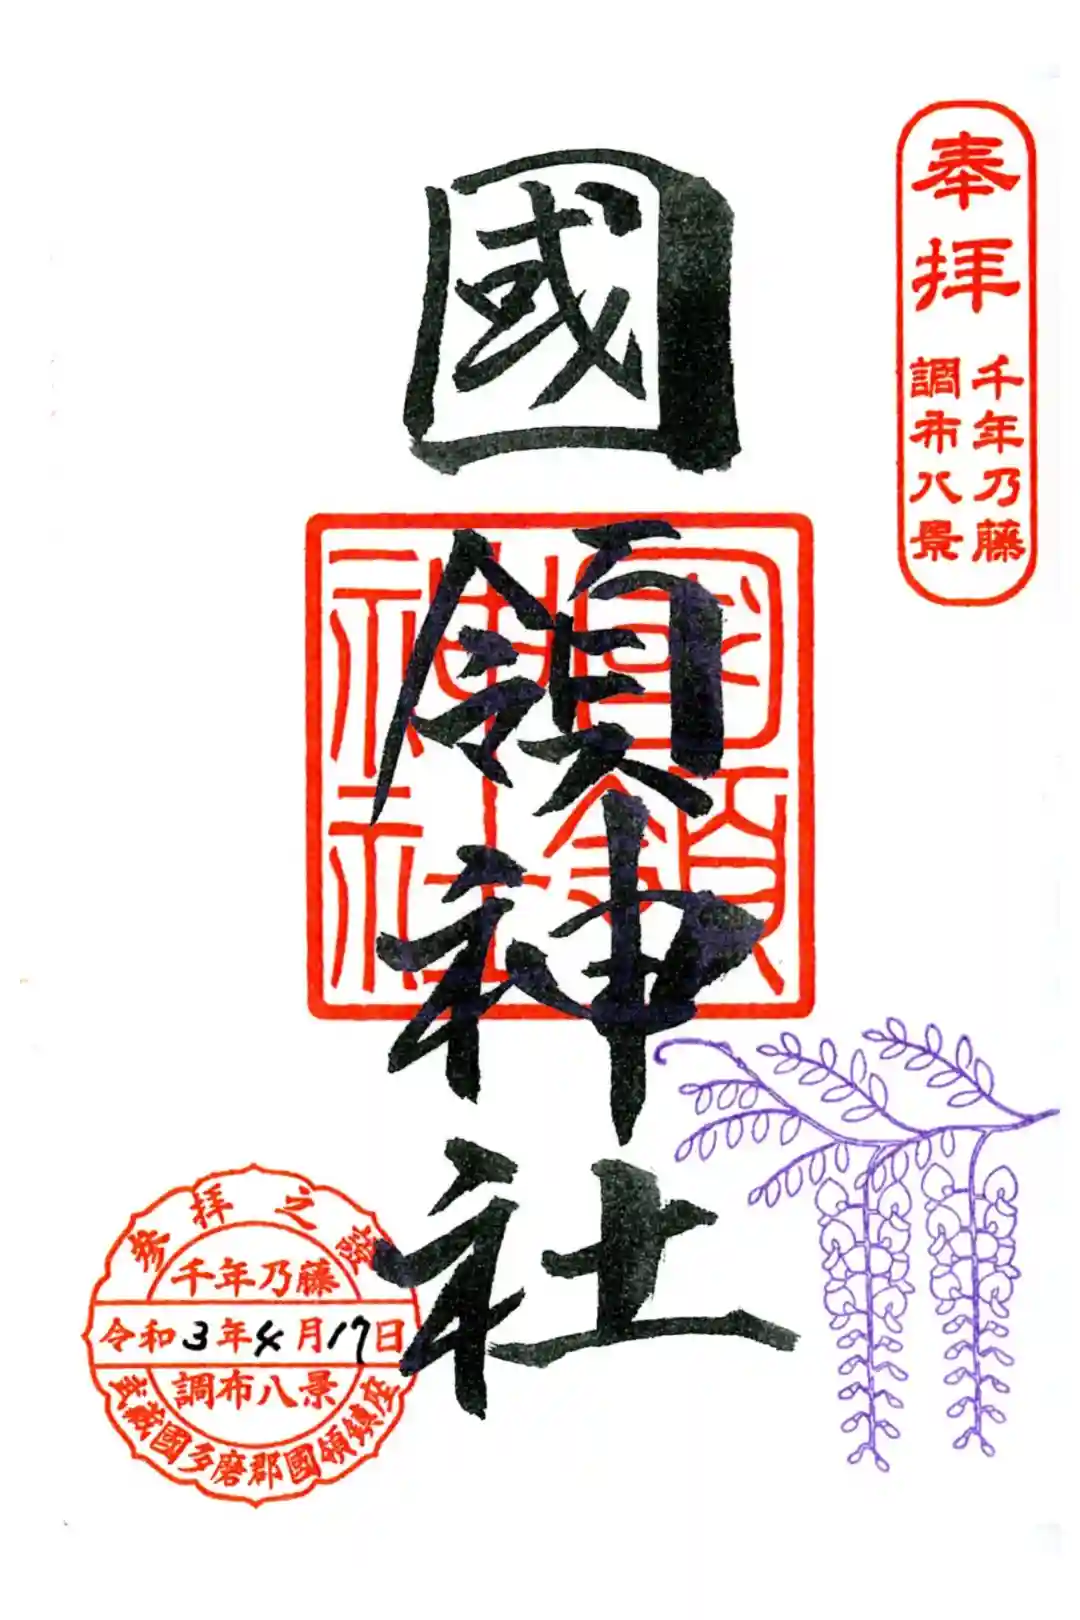 奉拝
千年乃藤
調布八景
國領神社
國領
神社
参拝之證
千年乃藤
令和3年4月17日
調布八景
武蔵國多磨郡國領鎮座